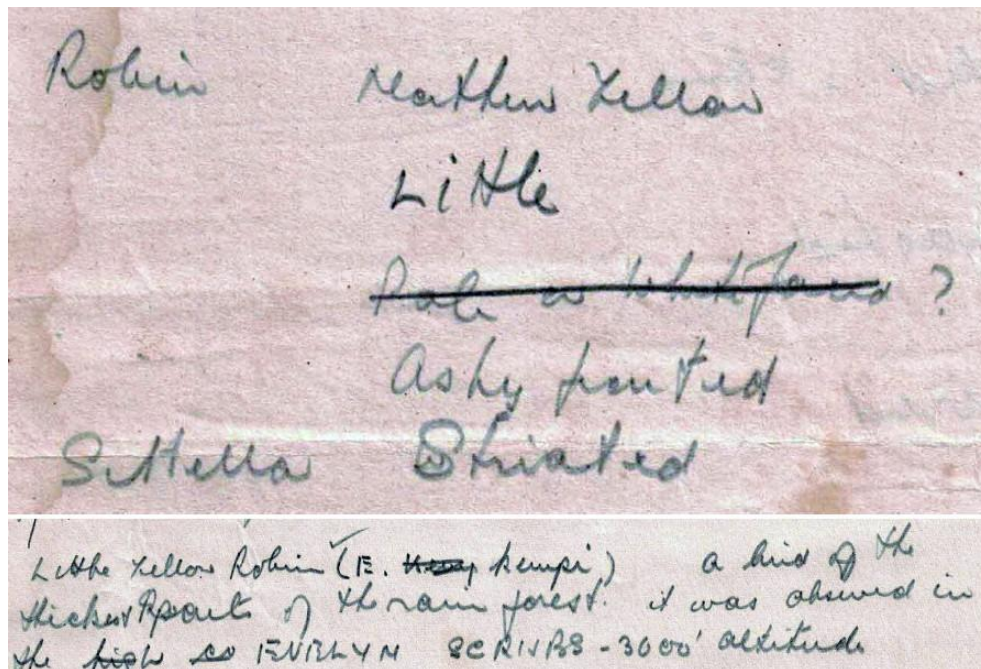 Robin Northern Yellow
Little
Pale or Whitefaced ?
Ashy fronted
Sittella Striated
Little Yellow Robin (E. kempi) a bird of the
thickest parts of the rain forest. it was observed in
the high EVELYN SCRUBS - 3000' altitude